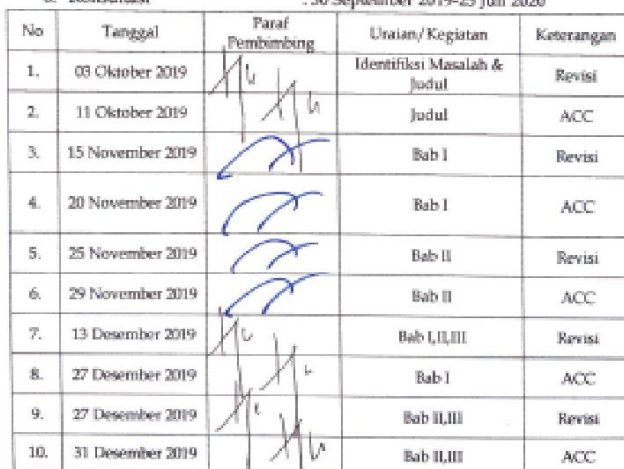 Konsultasi : 30 September 2019-25 Juli 2020
No Tanggal Paraf Pembimbing Uraian/Kegiatan Keterangan
1. 03 Oktober 2019 Identifiksi Masalah & Judul Revisi
2. 11 Oktober 2019 Judul ACC
3. 15 November 2019 Bab I Revisi
4. 20 November 2019 Bab I ACC
5. 25 November 2019 Bab II Revisi
6. 29 November 2019 Bab II ACC
7. 13 Desember 2019 Bab I,II,III Revisi
8. 27 Desember 2019 Bab I ACC
9. 27 Desember 2019 Bab II,III Revisi
10. 31 Desember 2019 Bab II,III ACC